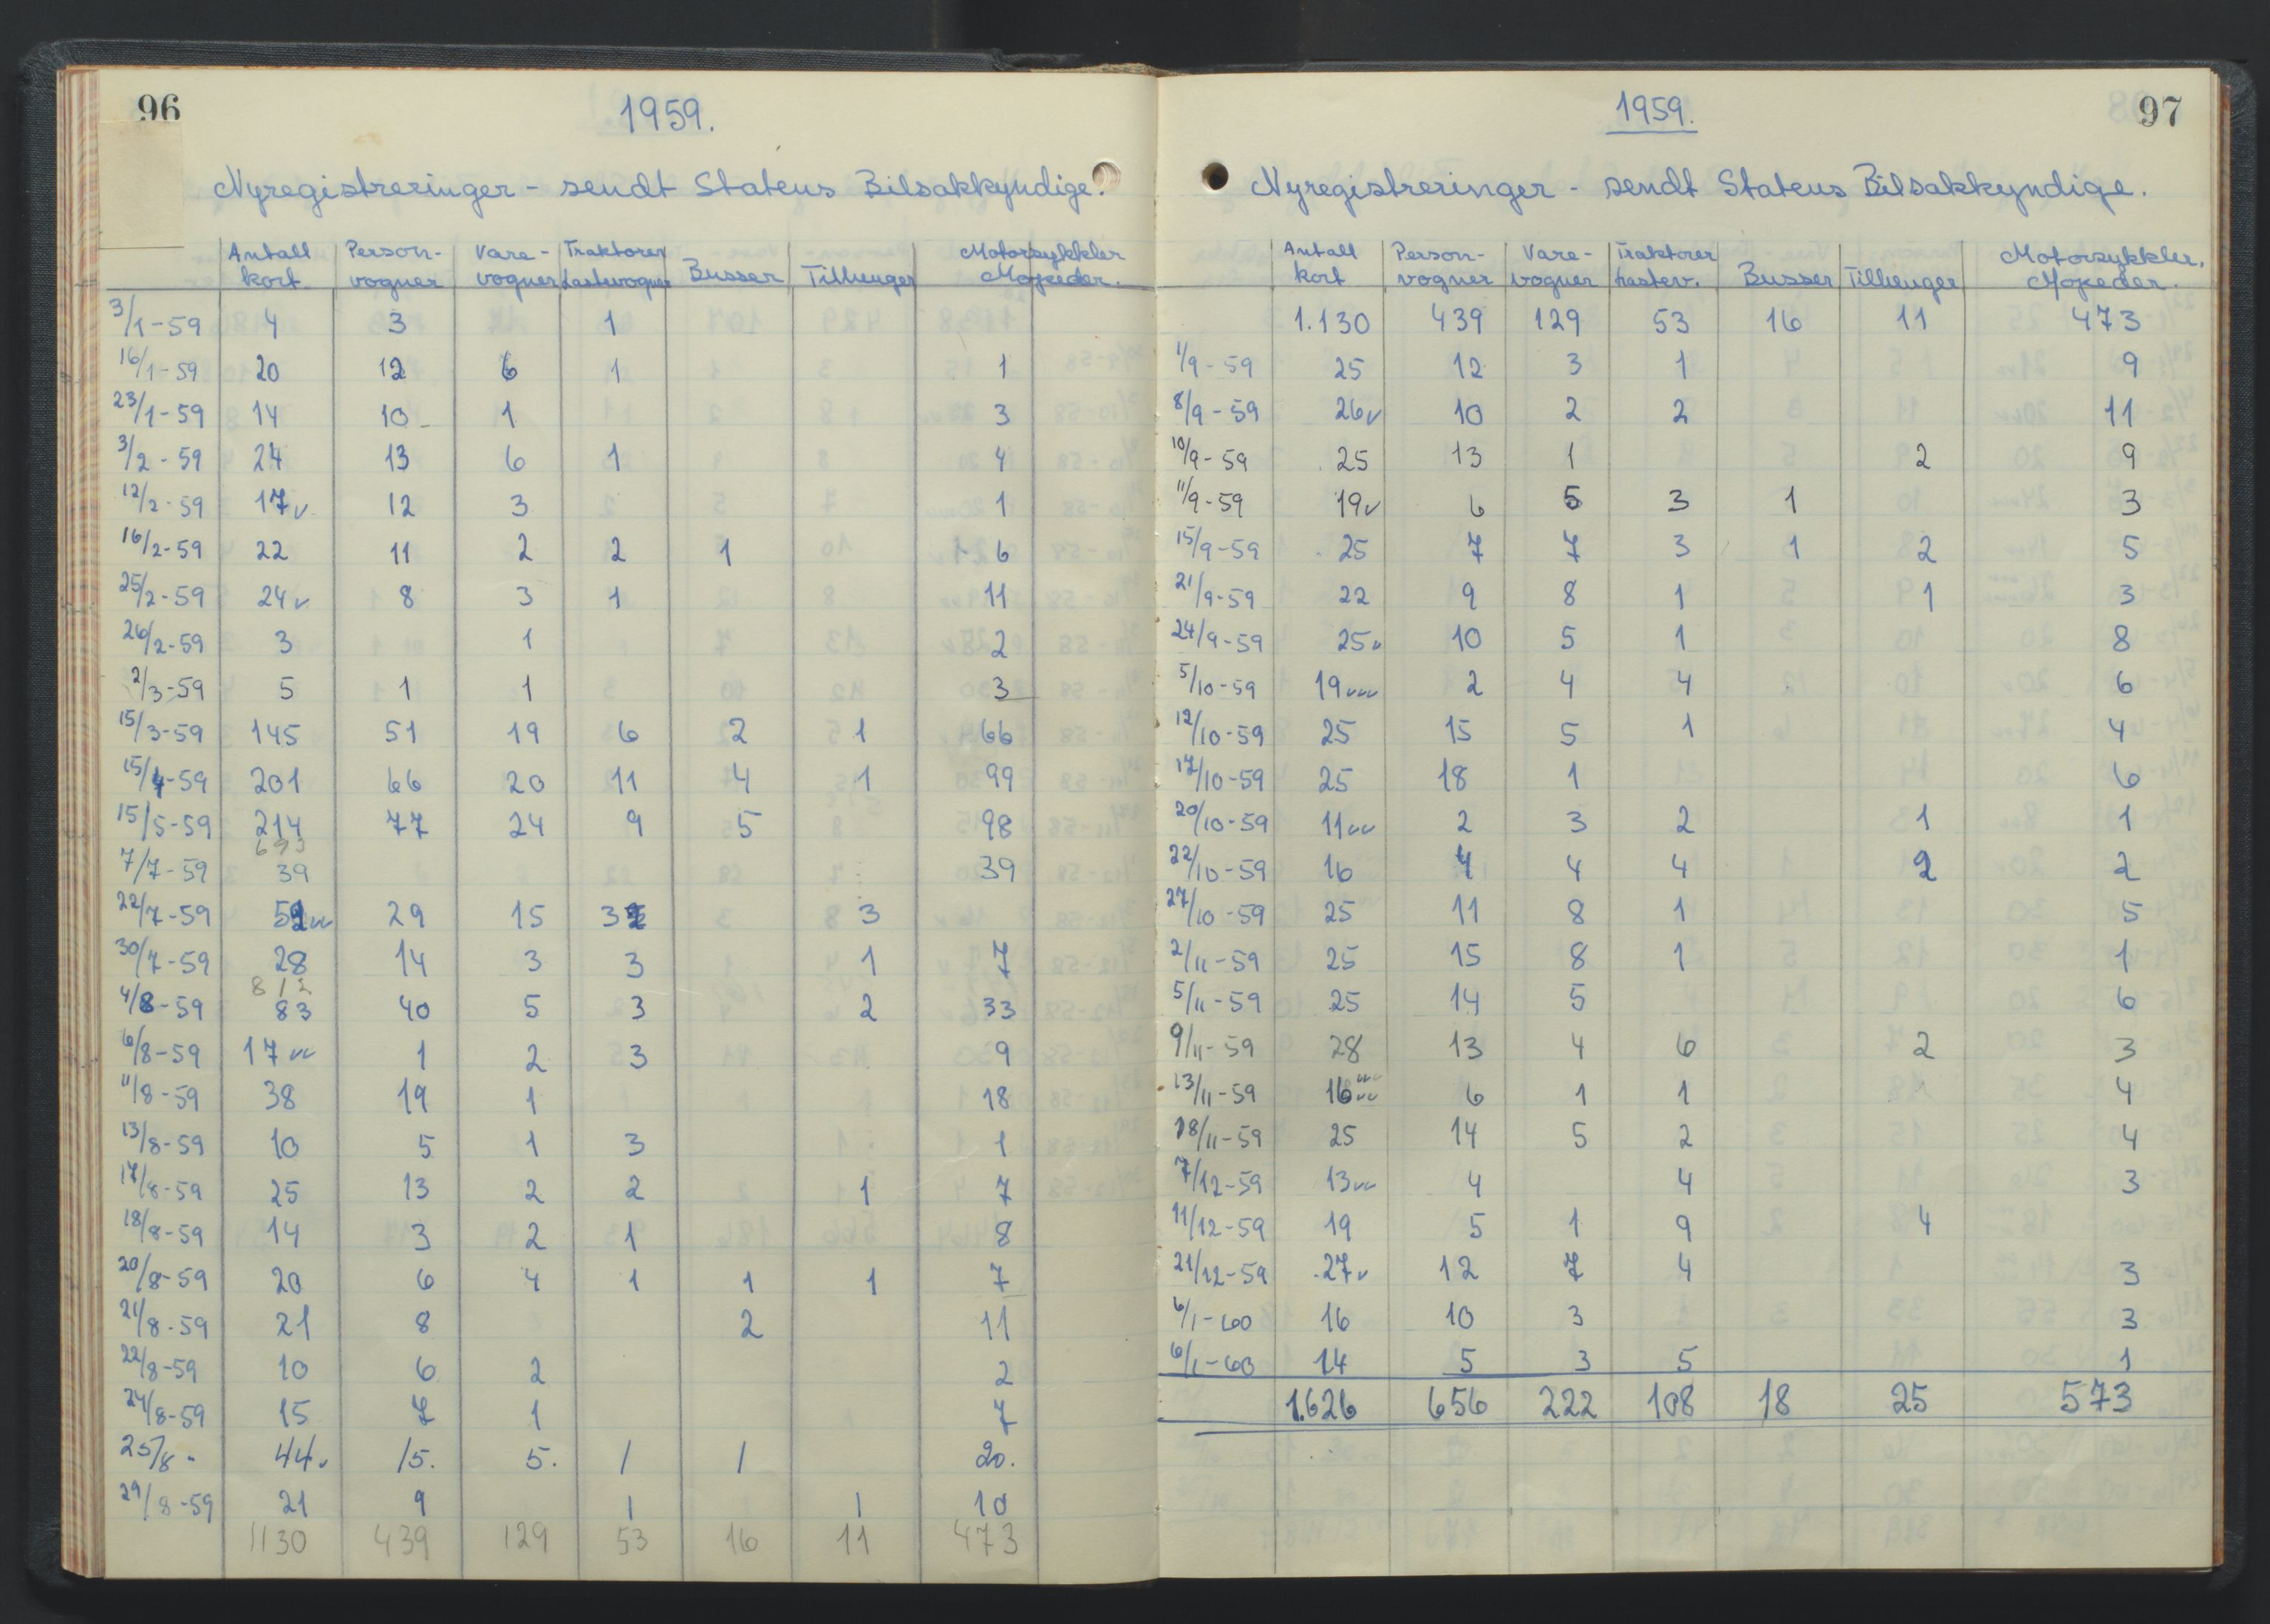 96
1959.
Nyregistreringer - sendt Statens Bilsakkyndige.
Antall kort Person-vogner Vare-vogner Traktorer Lastevogner Busser Tilhenger Motorsykkler Mopeder.
3/1-59 4 3 1
16/1-59 20 12 6 1 1
23/1-59 14 10 1 3
3/2-59 24 13 6 1 4
12/2-59 17v 12 3 1
16/2-59 22 11 2 2 1 6
25/2-59 24v 8 3 1 11
26/2-59 3 1 2
2/3-59 5 1 1 3
15/3-59 145 51 19 6 2 1 66
15/4-59 201 66 20 11 4 1 99
15/5-59 214 77 24 9 5 98
693
7/7-59 39 39
22/7-59 29 15 3
30/7-59 28 14 3 3 1 7
812
4/8-59 83 40 5 3 2 33
6/8-59 17vv 1 2 3 9
11/8-59 38 19 1 18
13/8-59 10 5 1 3 1
17/8-59 25 13 2 2 1 7
18/8-59 14 3 2 1 8
20/8-59 20 6 4 1 1 1 7
21/8-59 21 8 2 11
22/8-59 10 6 2 2
24/8-59 15 7 1 7
25/8- 44v 15. 5. 1 1 20.
29/8-59 21 9 1 1 10
1130 439 129 53 16 11 473
97
1959.
Nyregistreringer - sendt Statens Bilsakkyndige.
Antall kort Person-vogner Vare-vogner Traktorer Lastev. Busser Tilhenger Motorsykkler. Mopeder.
1.130 439 129 53 16 11 473
1/9-59 25 12 3 1 9
8/9-59 26v 10 2 2 11
10/9-59 25 13 1 2 9
11/9-59 19v 6 5 3 1 3
15/9-59 25 7 7 3 1 2 5
21/9-59 22 9 8 1 1 3
24/9-59 25v 10 5 1 8
5/10-59 19vvv 2 4 4 6
12/10-59 25 15 5 1 4
17/10-59 25 18 1 6
20/10-59 11vv 2 3 2 1 1
22/10-59 16 4 4 4 2 2
27/10-59 25 11 8 1 5
2/11-59 25 15 8 1 1
5/11-59 25 14 5 6
9/11-59 28 13 4 6 2 3
13/11-59 16vvvv 6 1 1 4
18/11-59 25 14 5 2 4
7/12-59 13vv 4 4 3
11/12-59 19 5 1 9 4
21/12-59 27v 12 7 4 3
6/1-60 16 10 3 3
6/1-60 14 5 3 5 1
1.626 656 222 108 18 25 573